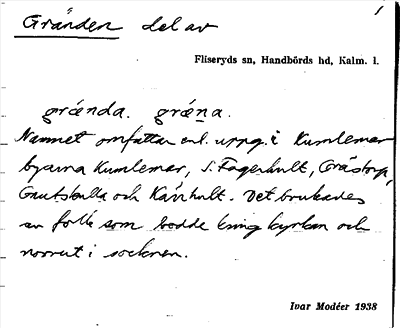 Gränden del av
1
Fliseryds sn, Handbörds hd, Kalm. l.
grǽnda. grǽna.
Namnet omfattar enl. uppg. i Kumlemar
byarna Kumlemar, S. Fagerhult, Grästorp,
Gautskulla och Kärrhult. Det brukades
av folk som bodde kring kyrkan och
norrut i socknen.
Ivar Modéer 1938